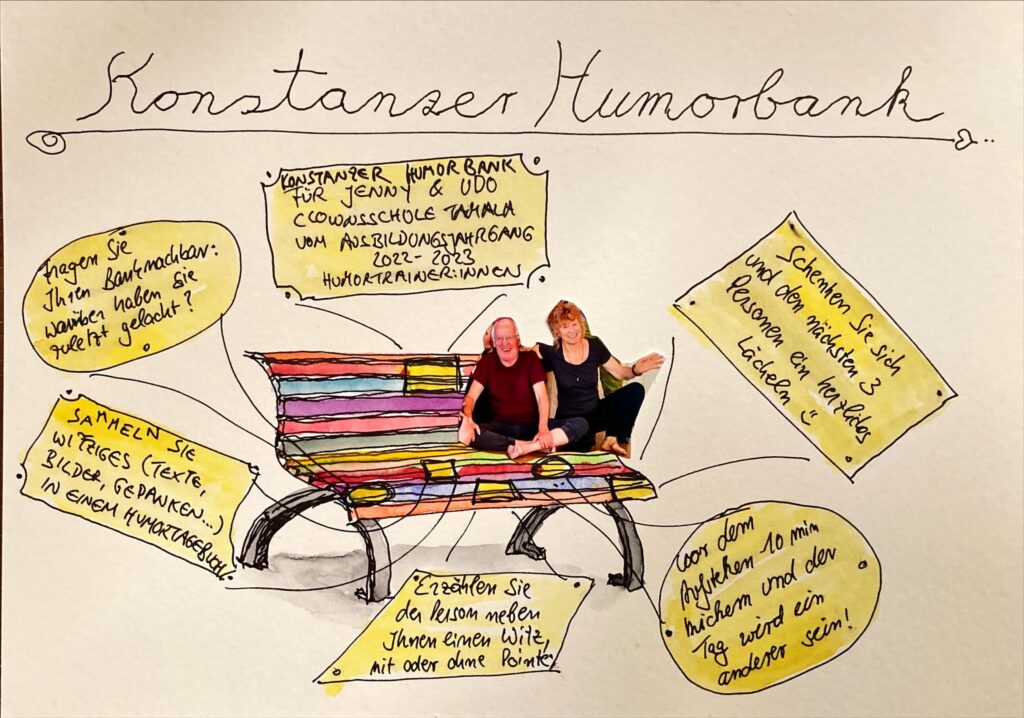 Konstanzer Humorbank
KONSTANZER HUMORBANK
FÜR JENNY & UDO
CLOWNSSCHULE TAMALA
VOM AUSBILDUNGSJAHRGANG
2022-2023
HUMORTRAINER:INNEN
Fragen Sie
Ihren Banknachbar:
worüber haben Sie
zuletzt gelacht?
Schenken Sie sich
und den nächsten 3
Personen ein herzliches
Lächeln
SAMMELN SIE
WITZIGES (TEXTE,
BILDER, GEDANKEN...)
IN EINEM HUMORTAGEBUCH
Erzählen Sie
der Person neben
Ihnen einen Witz,
mit oder ohne Pointe
Vor dem
Aufstehen 10 min
kichern und der
Tag wird ein
anderer sein!